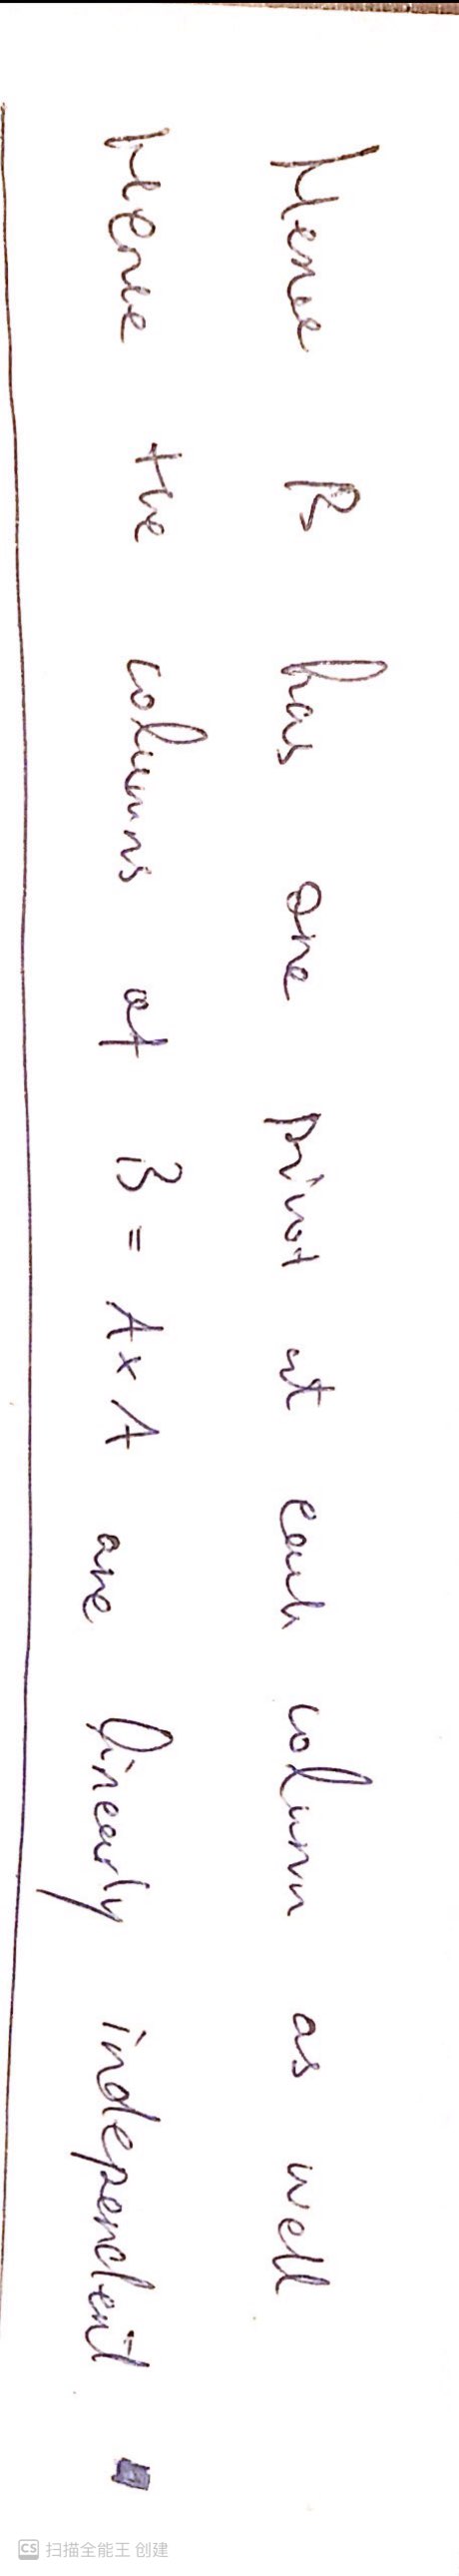 Hence B has one pivot at each column as well
Hence the columns of B = A × A are linearly independent ■
CS 扫描全能王 创建